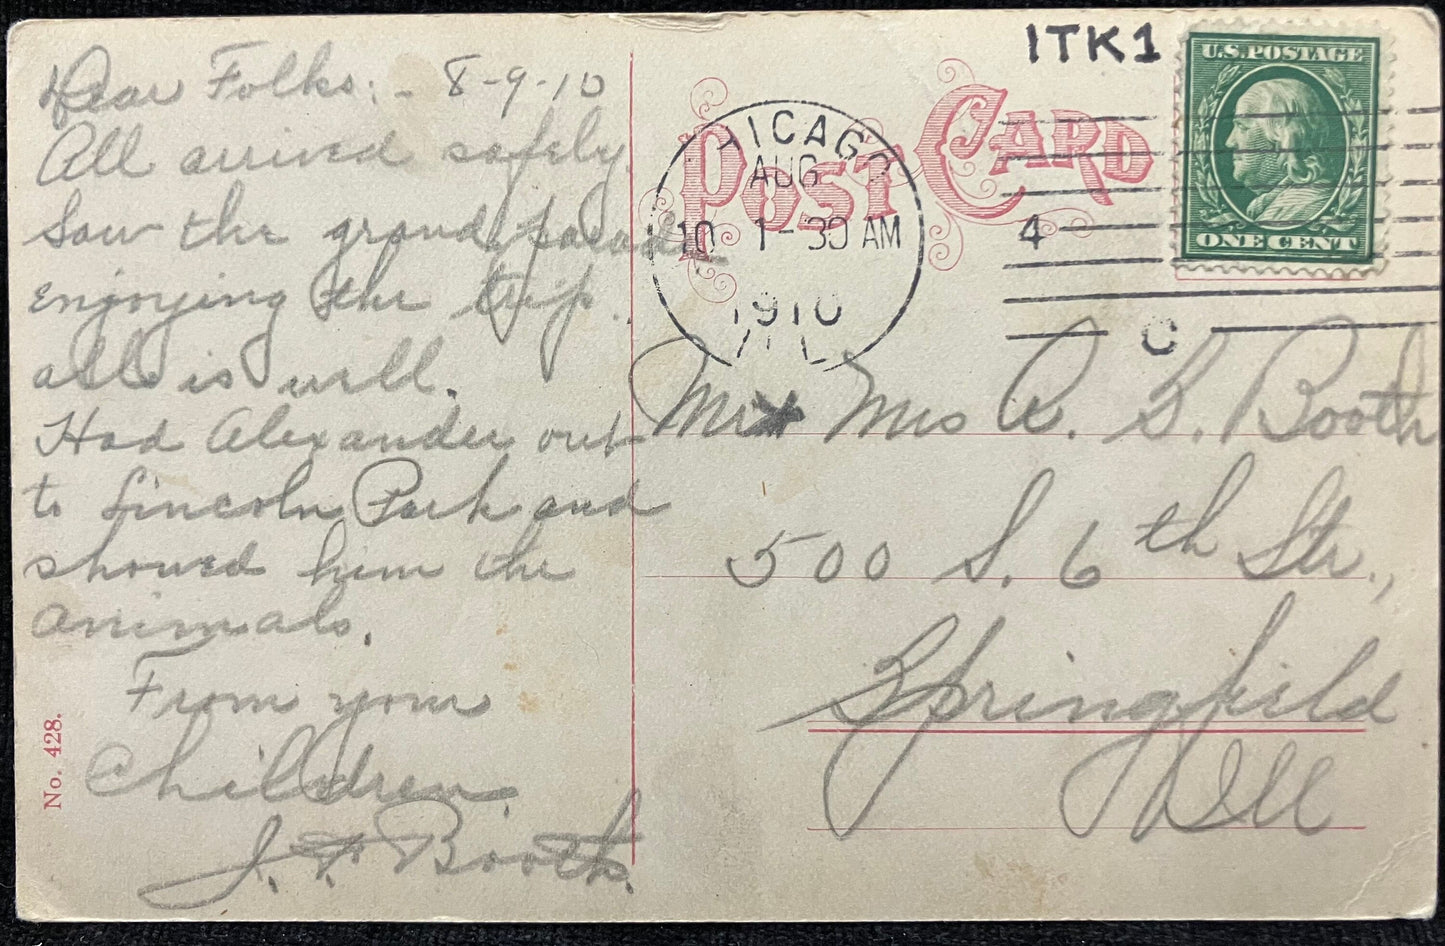 Dear Folks: - 8-9-10
All arrived safely
Saw the grand parade
enjoying the trip.
all is well.
Had Alexander out
to Lincoln Park and
showed him the
animals.
From your
Children.
J. F. Booth.
No. 428.
POST CARD
ITK1
U.S. POSTAGE
ONE CENT
CHICAGO
AUG
10 1-30 AM
1910
ILL
4
C
Mr & Mrs A. S. Booth
500 S. 6th Str.,
Springfield
Ill